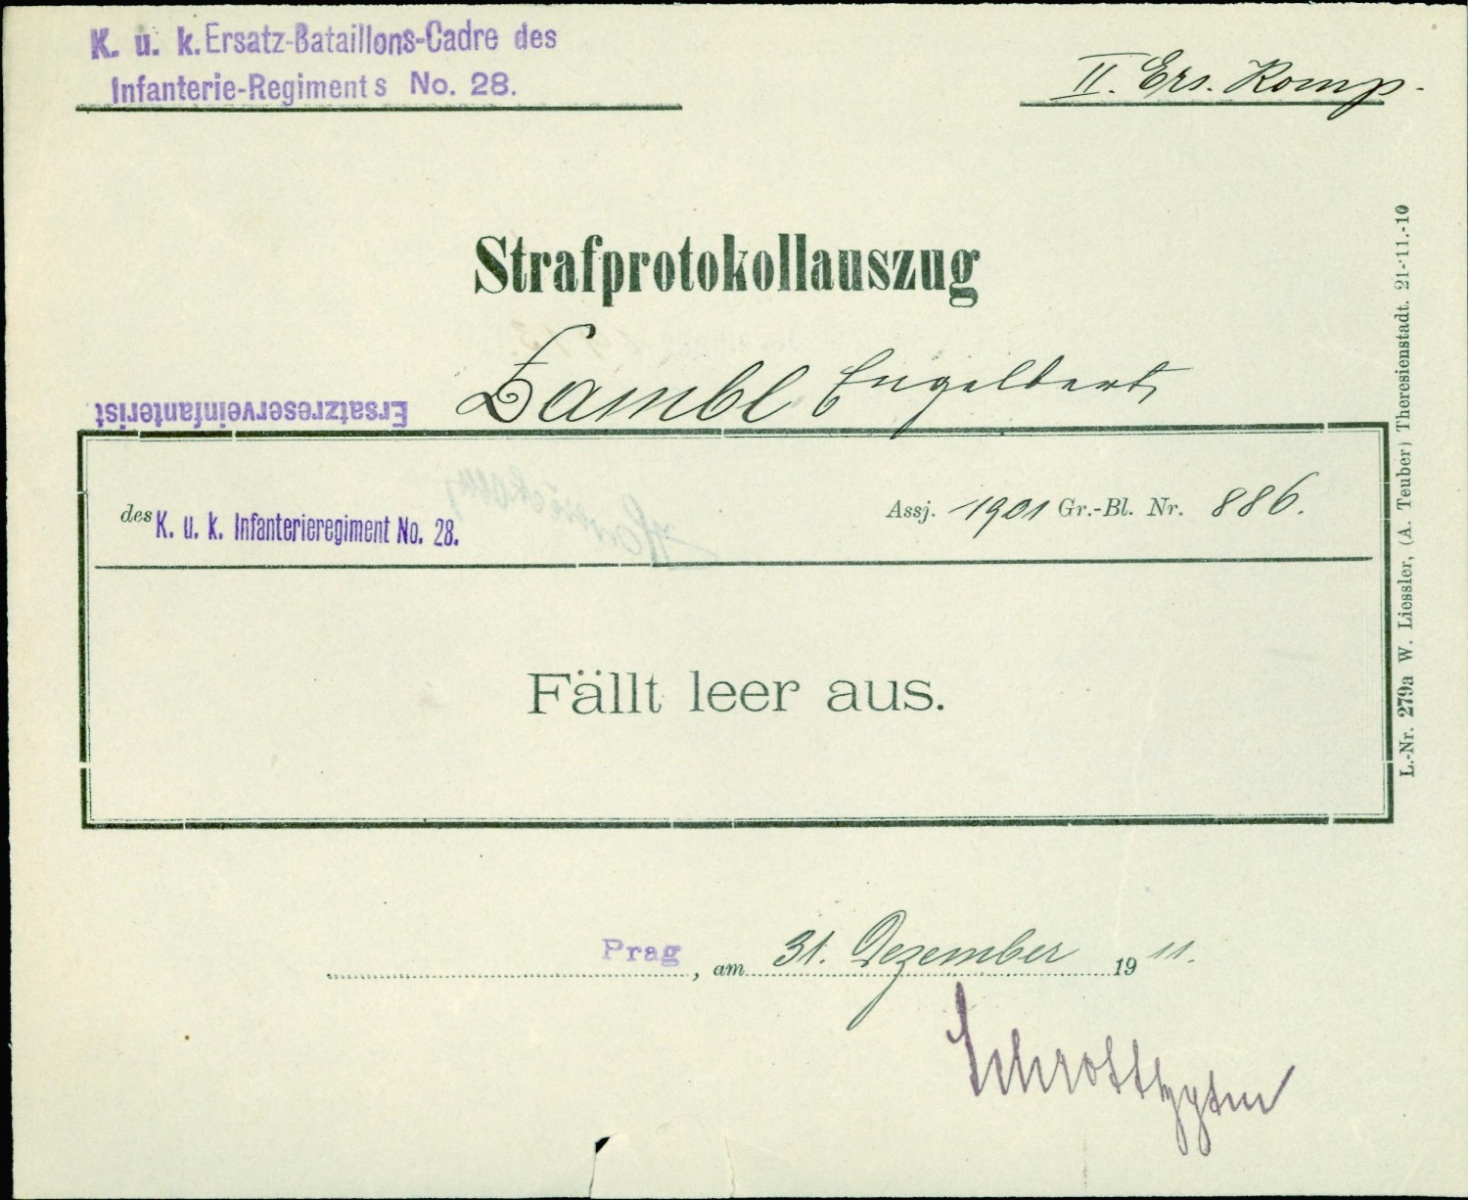 K. u. k. Ersatz-Bataillons-Cadre des
Infanterie-Regiments No. 28.
II. Ers. Komp.
Strafprotokollauszug
Ersatzreserveinfanterist Zambl Engelbert
des K. u. k. Infanterieregiment No. 28. Assj. 1901 Gr.-Bl. Nr. 886.
Fällt leer aus.
Prag, am 31. Dezember 1911.
L.-Nr. 279a W. Liessler, (A. Teuber) Theresienstadt. 21-11.-10